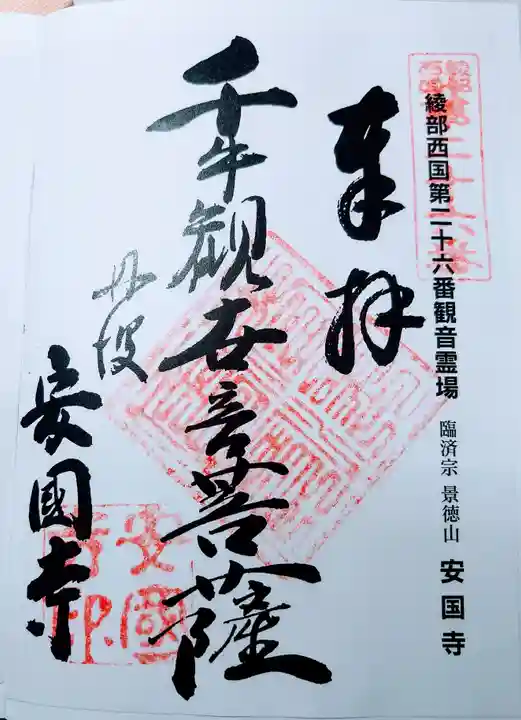 綾部西国第二十六番観音霊場 臨済宗 景徳山 安国寺
奉拝
千手観世音菩薩
丹波
安國寺
安國寺印